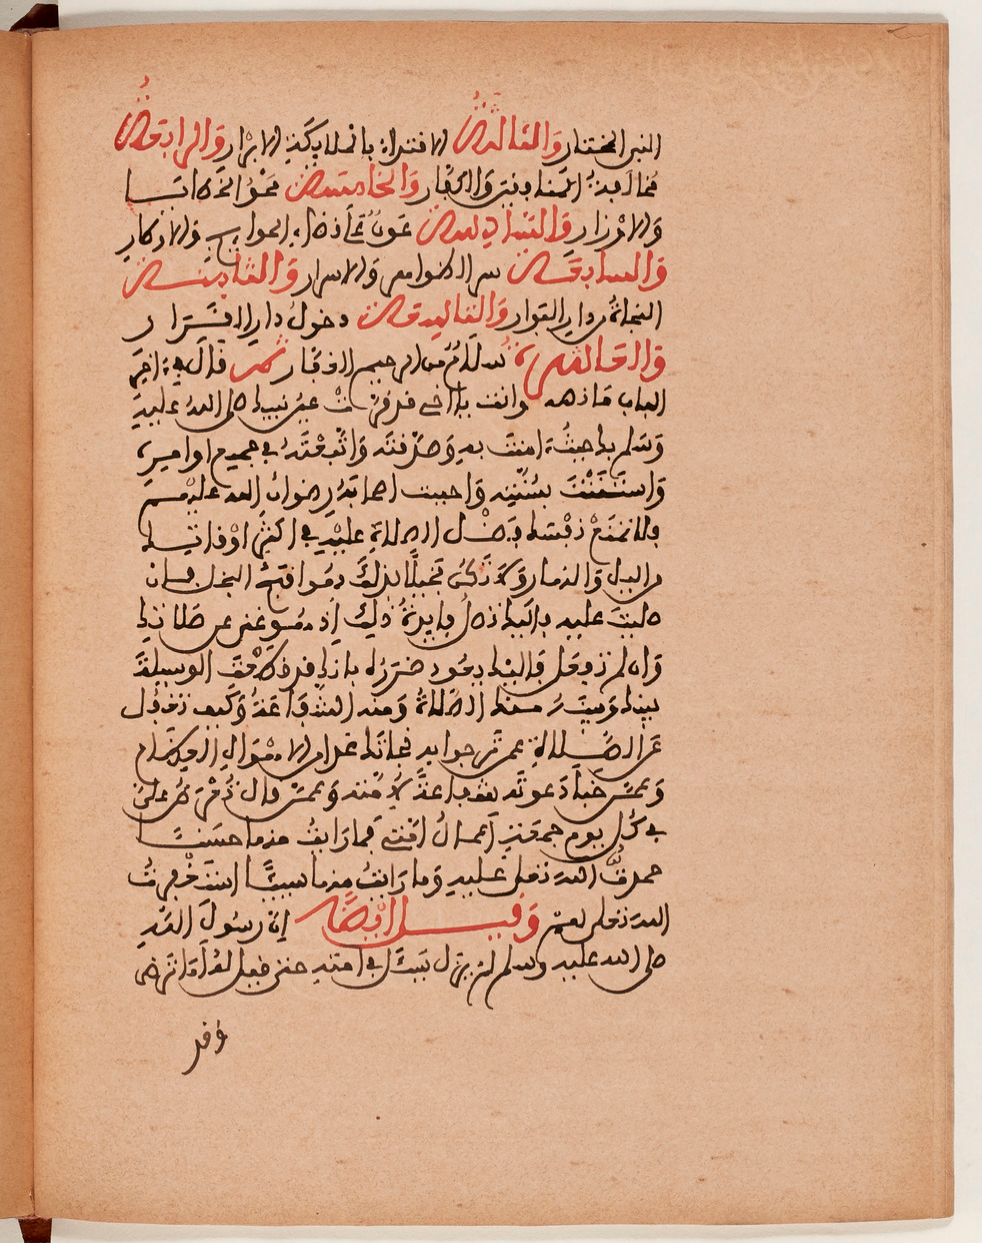 النبي المختار والثالثة الاقتداء بالملائكة الابرار والرابعة
مخالفة المنافقين والكفار والخامسة محو الخطايا
والاوزار والسادسة عون على قضاء الحوايج والاوطار
والسابعة الظواهر والاسرار والثامنة
النجاة من دار البوار والتاسعة دخول دار القرار
والعاشرة سلام من الرحيم الغفار قال في
الباب وانت يا اخي نبيك صلى الله عليه
وسلم امنت به وصدقته واتبعته في جميع اوامره
واستننت بسنته واحببت اصحابه رضوان الله عليهم
فلا تمنع نفسك فضل الصلاة عليه في اكثر اوقاتك
من اليل والنهار ولا تكن بخيلا بذلك البخل فان
صليت عليه فاليك تصل فايدة ذلك اذ هو غني عن صلاتك
وان لم تفعل فاليك يعود ضرره الوسيلة
بينك وبينه منك الصلاة ومنه الشفاعة وكيف تغفل
عن الصلاة عمن الاهوال
وعمن خبأ دعوته شفاعة لامته وعمن قال تعرض علي
في كل يوم جمعة اعمال امتي فما رايت منها حسنا
حمدت الله تعلى عليه وما رايت منها سيئا استغفرت
الله تعلى لهم وقيل ايضا ان رسول الله
صلى الله عليه وسلم لم يزل يسئل في امته حتى قيل له اما ترضى
وقد